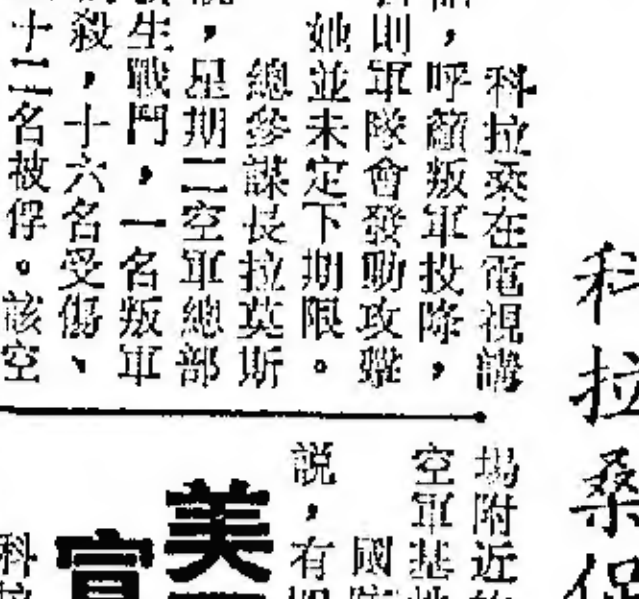 科拉桑保
科拉桑在電視講
，呼籲叛軍投降，
則軍隊會發動攻擊
她並未定下期限。
總參謀長拉莫斯
，星期二空軍總部
生戰鬥，一名叛軍
殺，十六名受傷、
十二名被俘。該空
場附近
空軍基地
國防
説，有
美
科拉